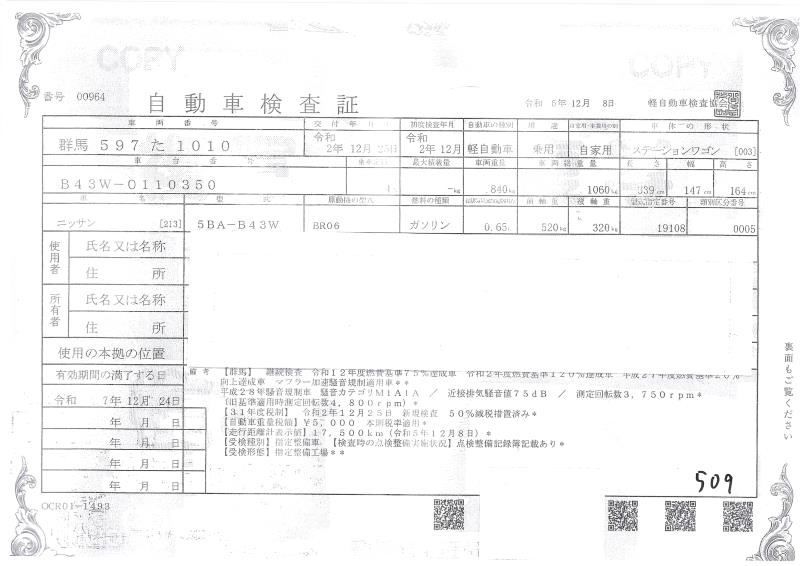 COPY
COPY
番号 00964
自動車検査証
令和 5年 12月 8日
軽自動車検査協会
車両番号 交付年月日 初度検査年月 自動車の種別 用途 自家用・事業用の別 車体の形状
群馬 597 た 1010
令和 2年 12月 25日
令和 2年 12月
軽自動車 乗用 自家用 ステーションワゴン [003]
車台番号 乗車定員 最大積載量 車両重量 車両総重量 長さ 幅 高さ
B43W-0110350
4 -kg 840kg 1060kg 339cm 147cm 164cm
車名 型式 原動機の型式 燃料の種類 前軸重 後軸重 型式指定番号 類別区分番号
ニッサン [213] 5BA-B43W BR06 ガソリン 0.65L 520kg 320kg 19108 0005
使用者
氏名又は名称
住所
所有者
氏名又は名称
住所
使用の本拠の位置
有効期間の満了する日
令和 7年 12月 24日
年 月 日
年 月 日
年 月 日
年 月 日
備考
【群馬】 継続検査 令和12年度燃費基準75%達成車 令和2年度燃費基準120%達成車 平成27年度燃費基準20%
向上達成車 マフラー加速騒音規制適用車**
平成28年騒音規制車 騒音カテゴリM1A1A / 近接排気騒音値75dB / 測定回転数3,750rpm*
(旧基準適用時測定回転数4,800rpm)*
【31年度税制】 令和2年12月25日 新規検査 50%減税措置済み*
【自動車重量税額】 ¥5,000 本則税率適用*
【走行距離計表示値】 17,500km(令和5年12月8日)*
【受検種別】指定整備車 【検査時の点検整備実施状況】点検整備記録簿記載あり*
【受検形態】指定整備工場**
裏面もご覧ください
509
OCR01-1493